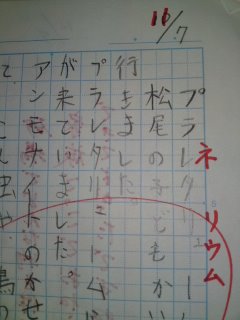 16/7
ネリウム
プラレタリー
松尾の子どもかい
行きました。
プラレタリームド
が来ていました。
アンモナイトのかせ